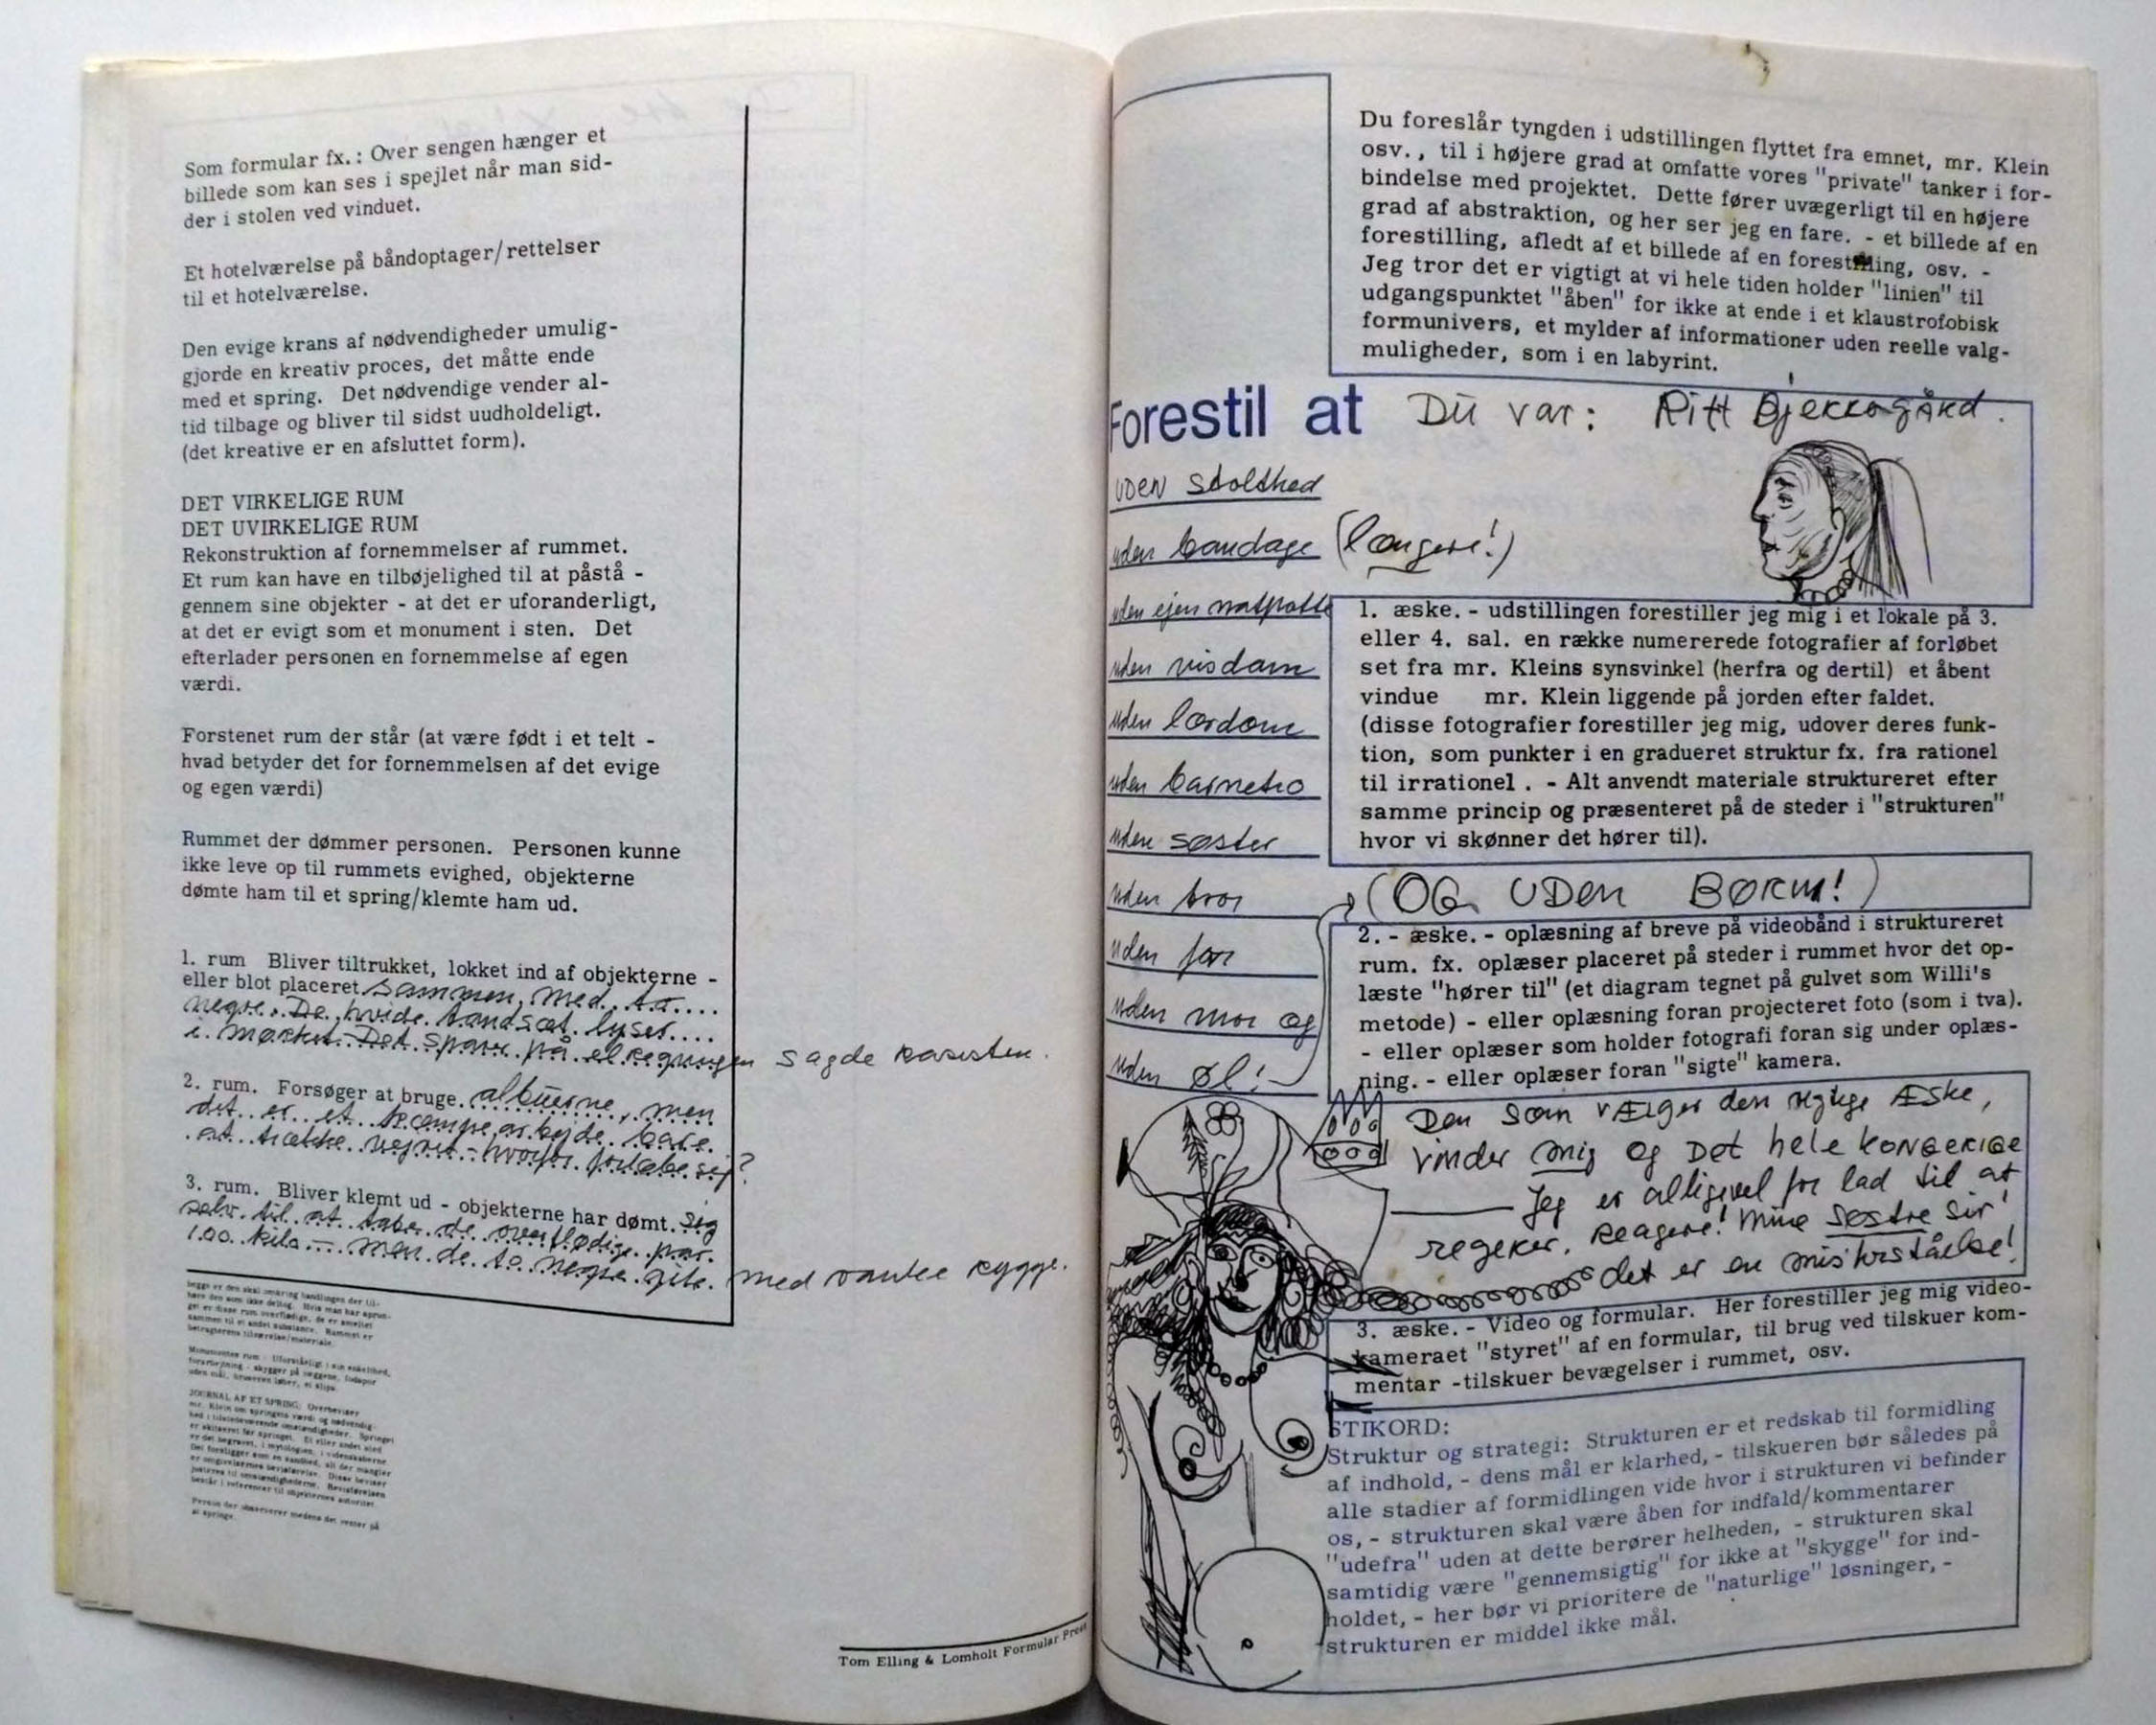 Som formular fx. : Over sengen hænger et
billede som kan ses i spejlet når man sid-
der i stolen ved vinduet.
Et hotelværelse på båndoptager/rettelser
til et hotelværelse.
Den evige krans af nødvendigheder umulig-
gjorde en kreativ proces, det måtte ende
med et spring. Det nødvendige vender al-
tid tilbage og bliver til sidst uudholdeligt.
(det kreative er en afsluttet form).
DET VIRKELIGE RUM
DET UVIRKELIGE RUM
Rekonstruktion af fornemmelser af rummet.
Et rum kan have en tilbøjelighed til at påstå -
gennem sine objekter - at det er uforanderligt,
at det er evigt som et monument i sten. Det
efterlader personen en fornemmelse af egen
værdi.
Forstenet rum der står (at være født i et telt -
hvad betyder det for fornemmelsen af det evige
og egen værdi)
Rummet der dømmer personen. Personen kunne
ikke leve op til rummets evighed, objekterne
dømte ham til et spring/klemte ham ud.
1. rum Bliver tiltrukket, lokket ind af objekterne -
eller blot placeret sammen, med. to....
negre. De. hvide. tandsæt. lyser....
i. mørket. Det. sparer. på. elregningen sagde racisten.
2. rum. Forsøger at bruge. albuerne, men
det. er. et. kæmpe arbejde. bare.
at. trække. vejret - hvorfor. fortabe sig?
3. rum. Bliver klemt ud - objekterne har dømt. sig
selv. til. at. tabe. de. overflødige. par.
100. kilo - men. de. to. negre. gik. med ranke rygge.
JOURNAL AF ET SPRING.
Tom Elling & Lomholt Formular Press
Du foreslår tyngden i udstillingen flyttet fra emnet, mr. Klein
osv. , til i højere grad at omfatte vores "private" tanker i for-
bindelse med projektet. Dette fører uvægerligt til en højere
grad af abstraktion, og her ser jeg en fare. - et billede af en
forestilling, afledt af et billede af en forestilling, osv. -
Jeg tror det er vigtigt at vi hele tiden holder "linien" til
udgangspunktet "åben" for ikke at ende i et klaustrofobisk
formunivers, et mylder af informationer uden reelle valg-
muligheder, som i en labyrint.
Forestil at Du var: Ritt Bjerregård.
UDEN stolthed
uden bandage (længere!)
uden ejen natpotte
uden visdom
uden lærdom
uden barnetro
uden søster
uden bror
uden far
uden mor og
uden øl!
1. æske. - udstillingen forestiller jeg mig i et lokale på 3.
eller 4. sal. en række numererede fotografier af forløbet
set fra mr. Kleins synsvinkel (herfra og dertil) et åbent
vindue mr. Klein liggende på jorden efter faldet.
(disse fotografier forestiller jeg mig, udover deres funk-
tion, som punkter i en gradueret struktur fx. fra rationel
til irrationel . - Alt anvendt materiale struktureret efter
samme princip og præsenteret på de steder i "strukturen"
hvor vi skønner det hører til).
(OG UDEN BØRM!)
2. - æske. - oplæsning af breve på videobånd i struktureret
rum. fx. oplæser placeret på steder i rummet hvor det op-
læste "hører til" (et diagram tegnet på gulvet som Willi's
metode) - eller oplæsning foran projecteret foto (som i tva).
- eller oplæser som holder fotografi foran sig under oplæs-
ning. - eller oplæser foran "sigte" kamera.
Den som vælger den rigtige Æske,
vinder mig og Det hele KONGERIGE
Jeg er alligevel for lad til at
regerer. Reagere! Mine søstre sir'
det er en misforståelse!
3. æske. - Video og formular. Her forestiller jeg mig video-
kameraet "styret" af en formular, til brug ved tilskuer kom-
mentar -tilskuer bevægelser i rummet, osv.
STIKORD:
Struktur og strategi: Strukturen er et redskab til formidling
af indhold, - dens mål er klarhed, - tilskueren bør således på
alle stadier af formidlingen vide hvor i strukturen vi befinder
os, - strukturen skal være åben for indfald/kommentarer
"udefra" uden at dette berører helheden, - strukturen skal
samtidig være "gennemsigtig" for ikke at "skygge" for ind-
holdet, - her bør vi prioritere de "naturlige" løsninger, -
strukturen er middel ikke mål.